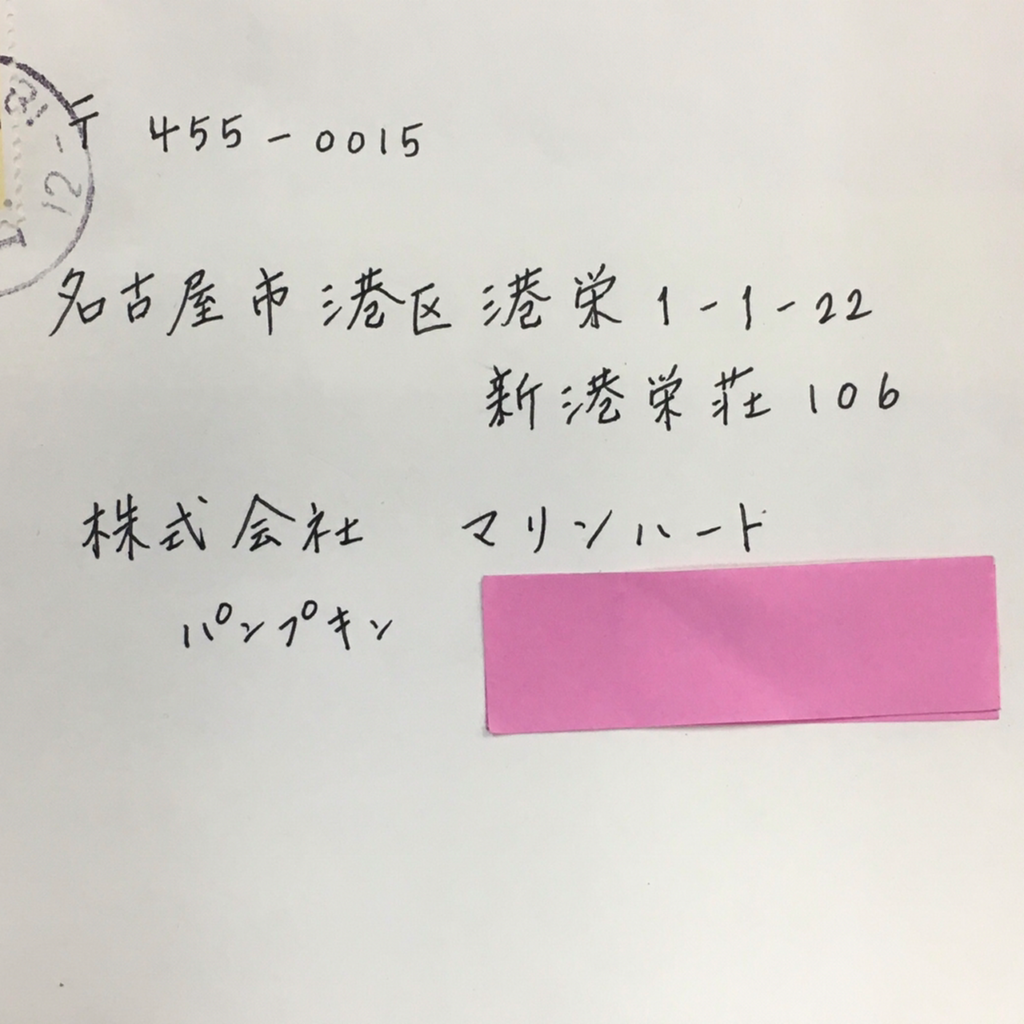 〒 455-0015
名古屋市港区港栄1-1-22
新港栄荘106
株式会社 マリンハート
パンプキン
12